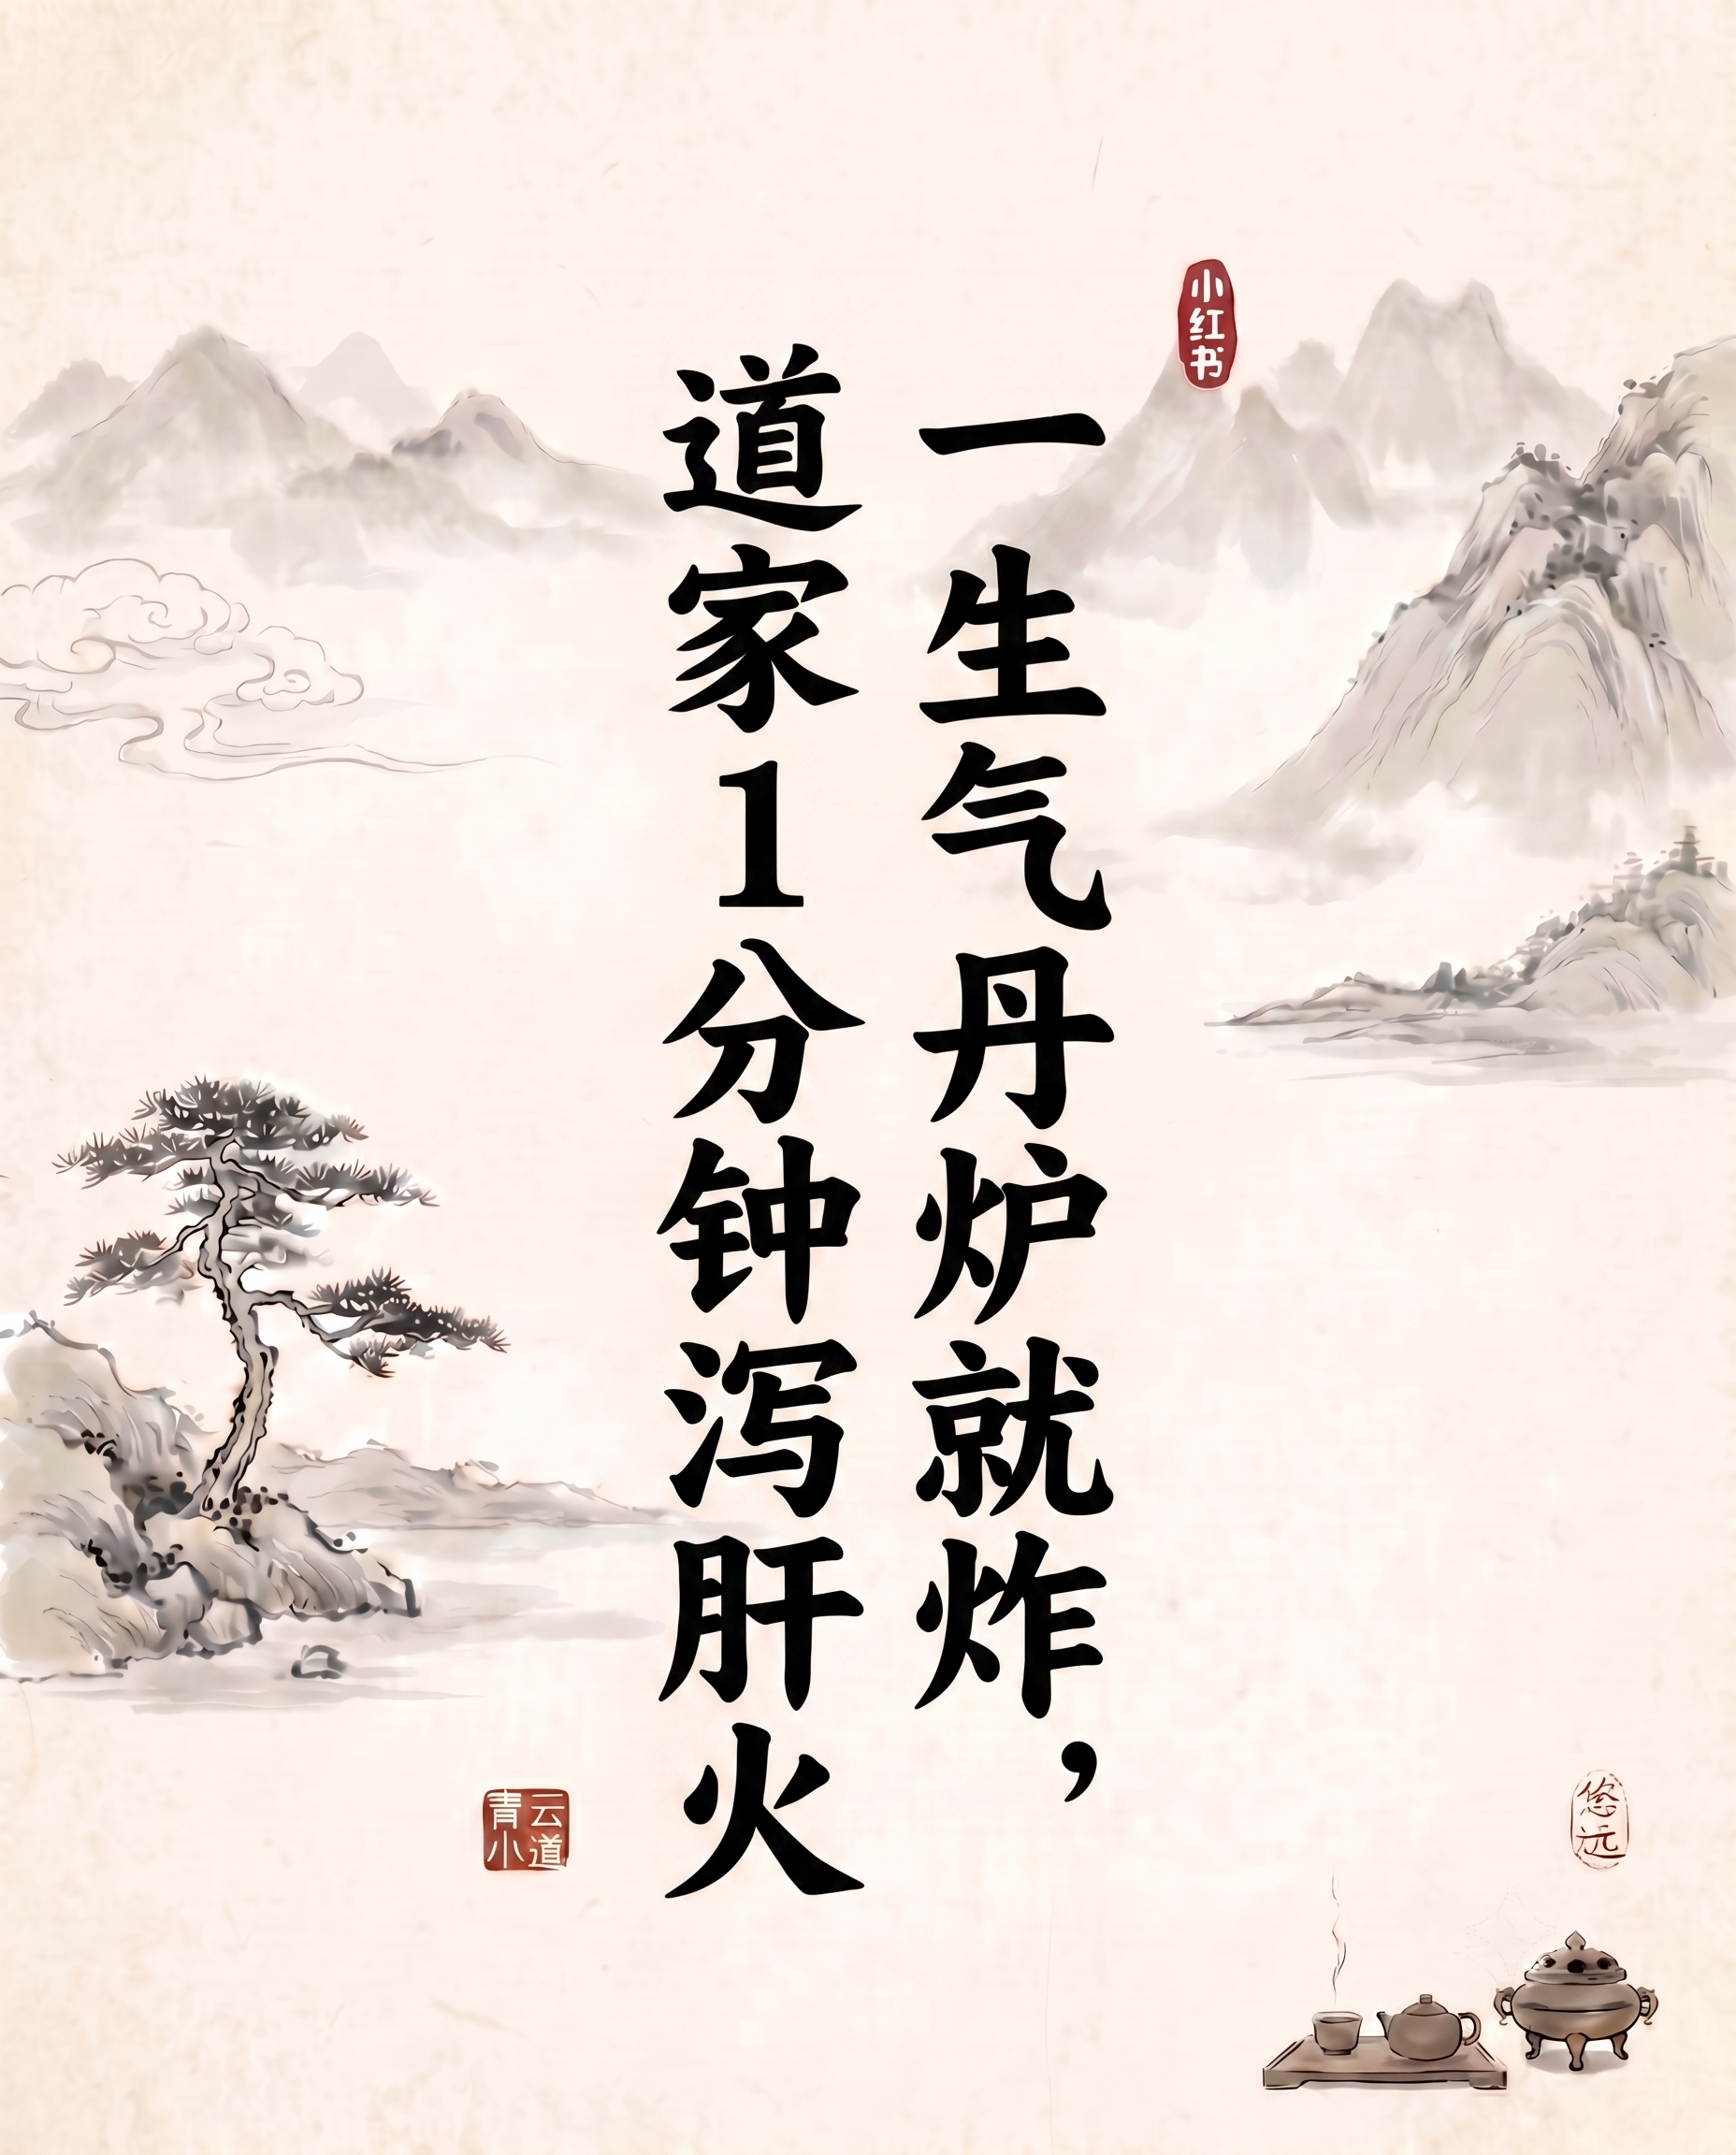 小红书
一生气丹炉就炸，
道家1分钟泻肝火
云道
青小
悠远